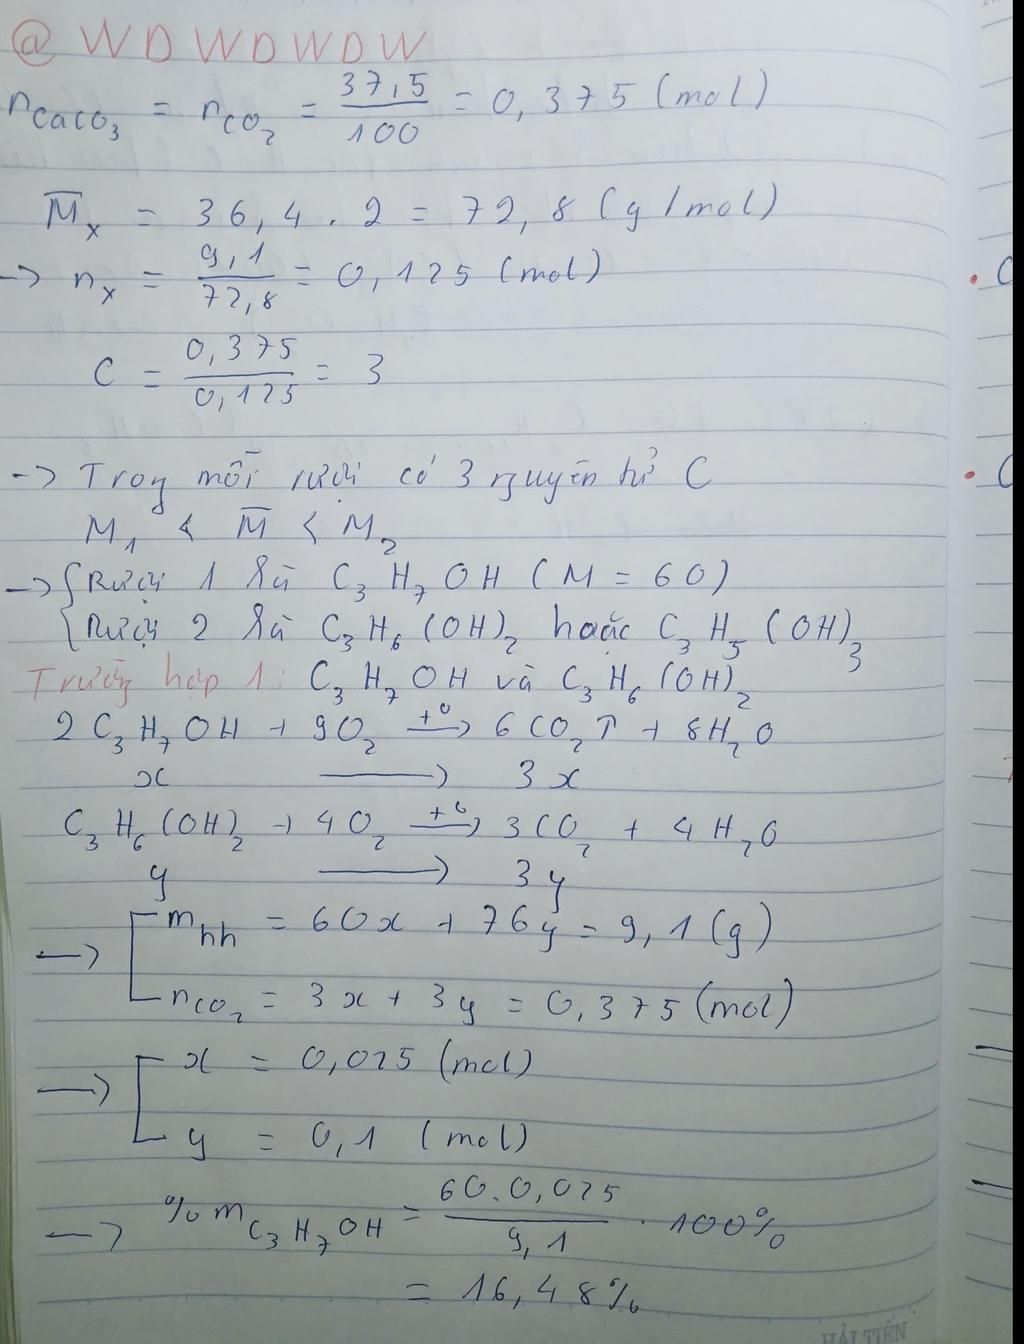 @ WDWDWDW
nCaCO₃ = nCO₂ = 37,5/100 = 0,375 (mol)
M̅x = 36,4 . 2 = 72,8 (g/mol)
-> nx = 9,1/72,8 = 0,125 (mol)
C = 0,375/0,125 = 3
-> Trong mỗi rượu có 3 nguyên tử C
M₁ < M̅ < M₂
-> { Rượu 1 là C₃H₇OH (M = 60)
{ Rượu 2 là C₃H₆(OH)₂ hoặc C₃H₅(OH)₃
Trường hợp 1: C₃H₇OH và C₃H₆(OH)₂
2C₃H₇OH + 9O₂ –t°–> 6CO₂↑ + 8H₂O
x ⟶ 3x
C₃H₆(OH)₂ + 4O₂ –t°–> 3CO₂ + 4H₂O
y ⟶ 3y
-> [ mhh = 60x + 76y = 9,1 (g)
[ nCO₂ = 3x + 3y = 0,375 (mol)
-> [ x = 0,025 (mol)
[ y = 0,1 (mol)
-> %mC₃H₇OH = 60.0,025/9,1 . 100%
= 16,48%
HẢI TIẾN